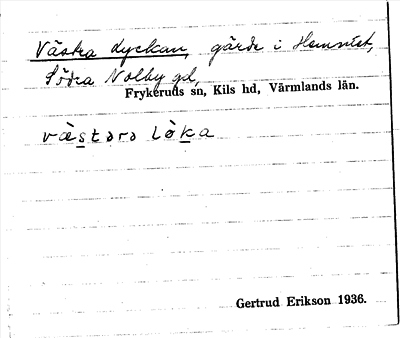 Västra Lyckan, gärde i Hemnäset,
Södra Nolby gd,
Frykeruds sn, Kils hd, Värmlands län.
væ̀stərə lø̀ka
Gertrud Erikson 1936.